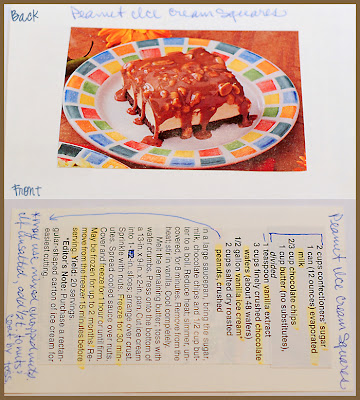 Peanut Ice Cream Squares
Back
Front
Peanut Ice Cream Squares
2 cups confectioners' sugar
1 can (12 ounces) evaporated
milk
2/3 cup chocolate chips
1 cup butter (no substitutes),
divided
1 teaspoon vanilla extract
3 cups finely crushed chocolate
wafers (about wafers)
1/2 gallon vanilla ice cream*
2 cups salted dry roasted
peanuts, crushed
In a large saucepan, bring the sugar,
milk, chocolate chips and 1/2 cup but-
ter to a boil. Reduce heat; simmer, un-
covered for 8 minutes. Remove from the
heat; stir in vanilla. Cool completely.
Melt the remaining butter; toss with
wafer crumbs. Press onto the bottom of
a 13-in. x 9-in. x 2-in. pan. Cut ice cream
into slices; arrange over crust.
Sprinkle with nuts. Freeze for 30 min-
utes. Spoon cooled sauce over nuts.
Cover and freeze for 1 hour or until firm.
May be frozen for up to 2 months. Re-
move from the freezer 10 minutes before
serving. Yield:
*Editor's Note: Purchase a rectan-
gular-shaped carton of ice cream for
easiest cutting.
*may use mixed
if unsalted add salt to